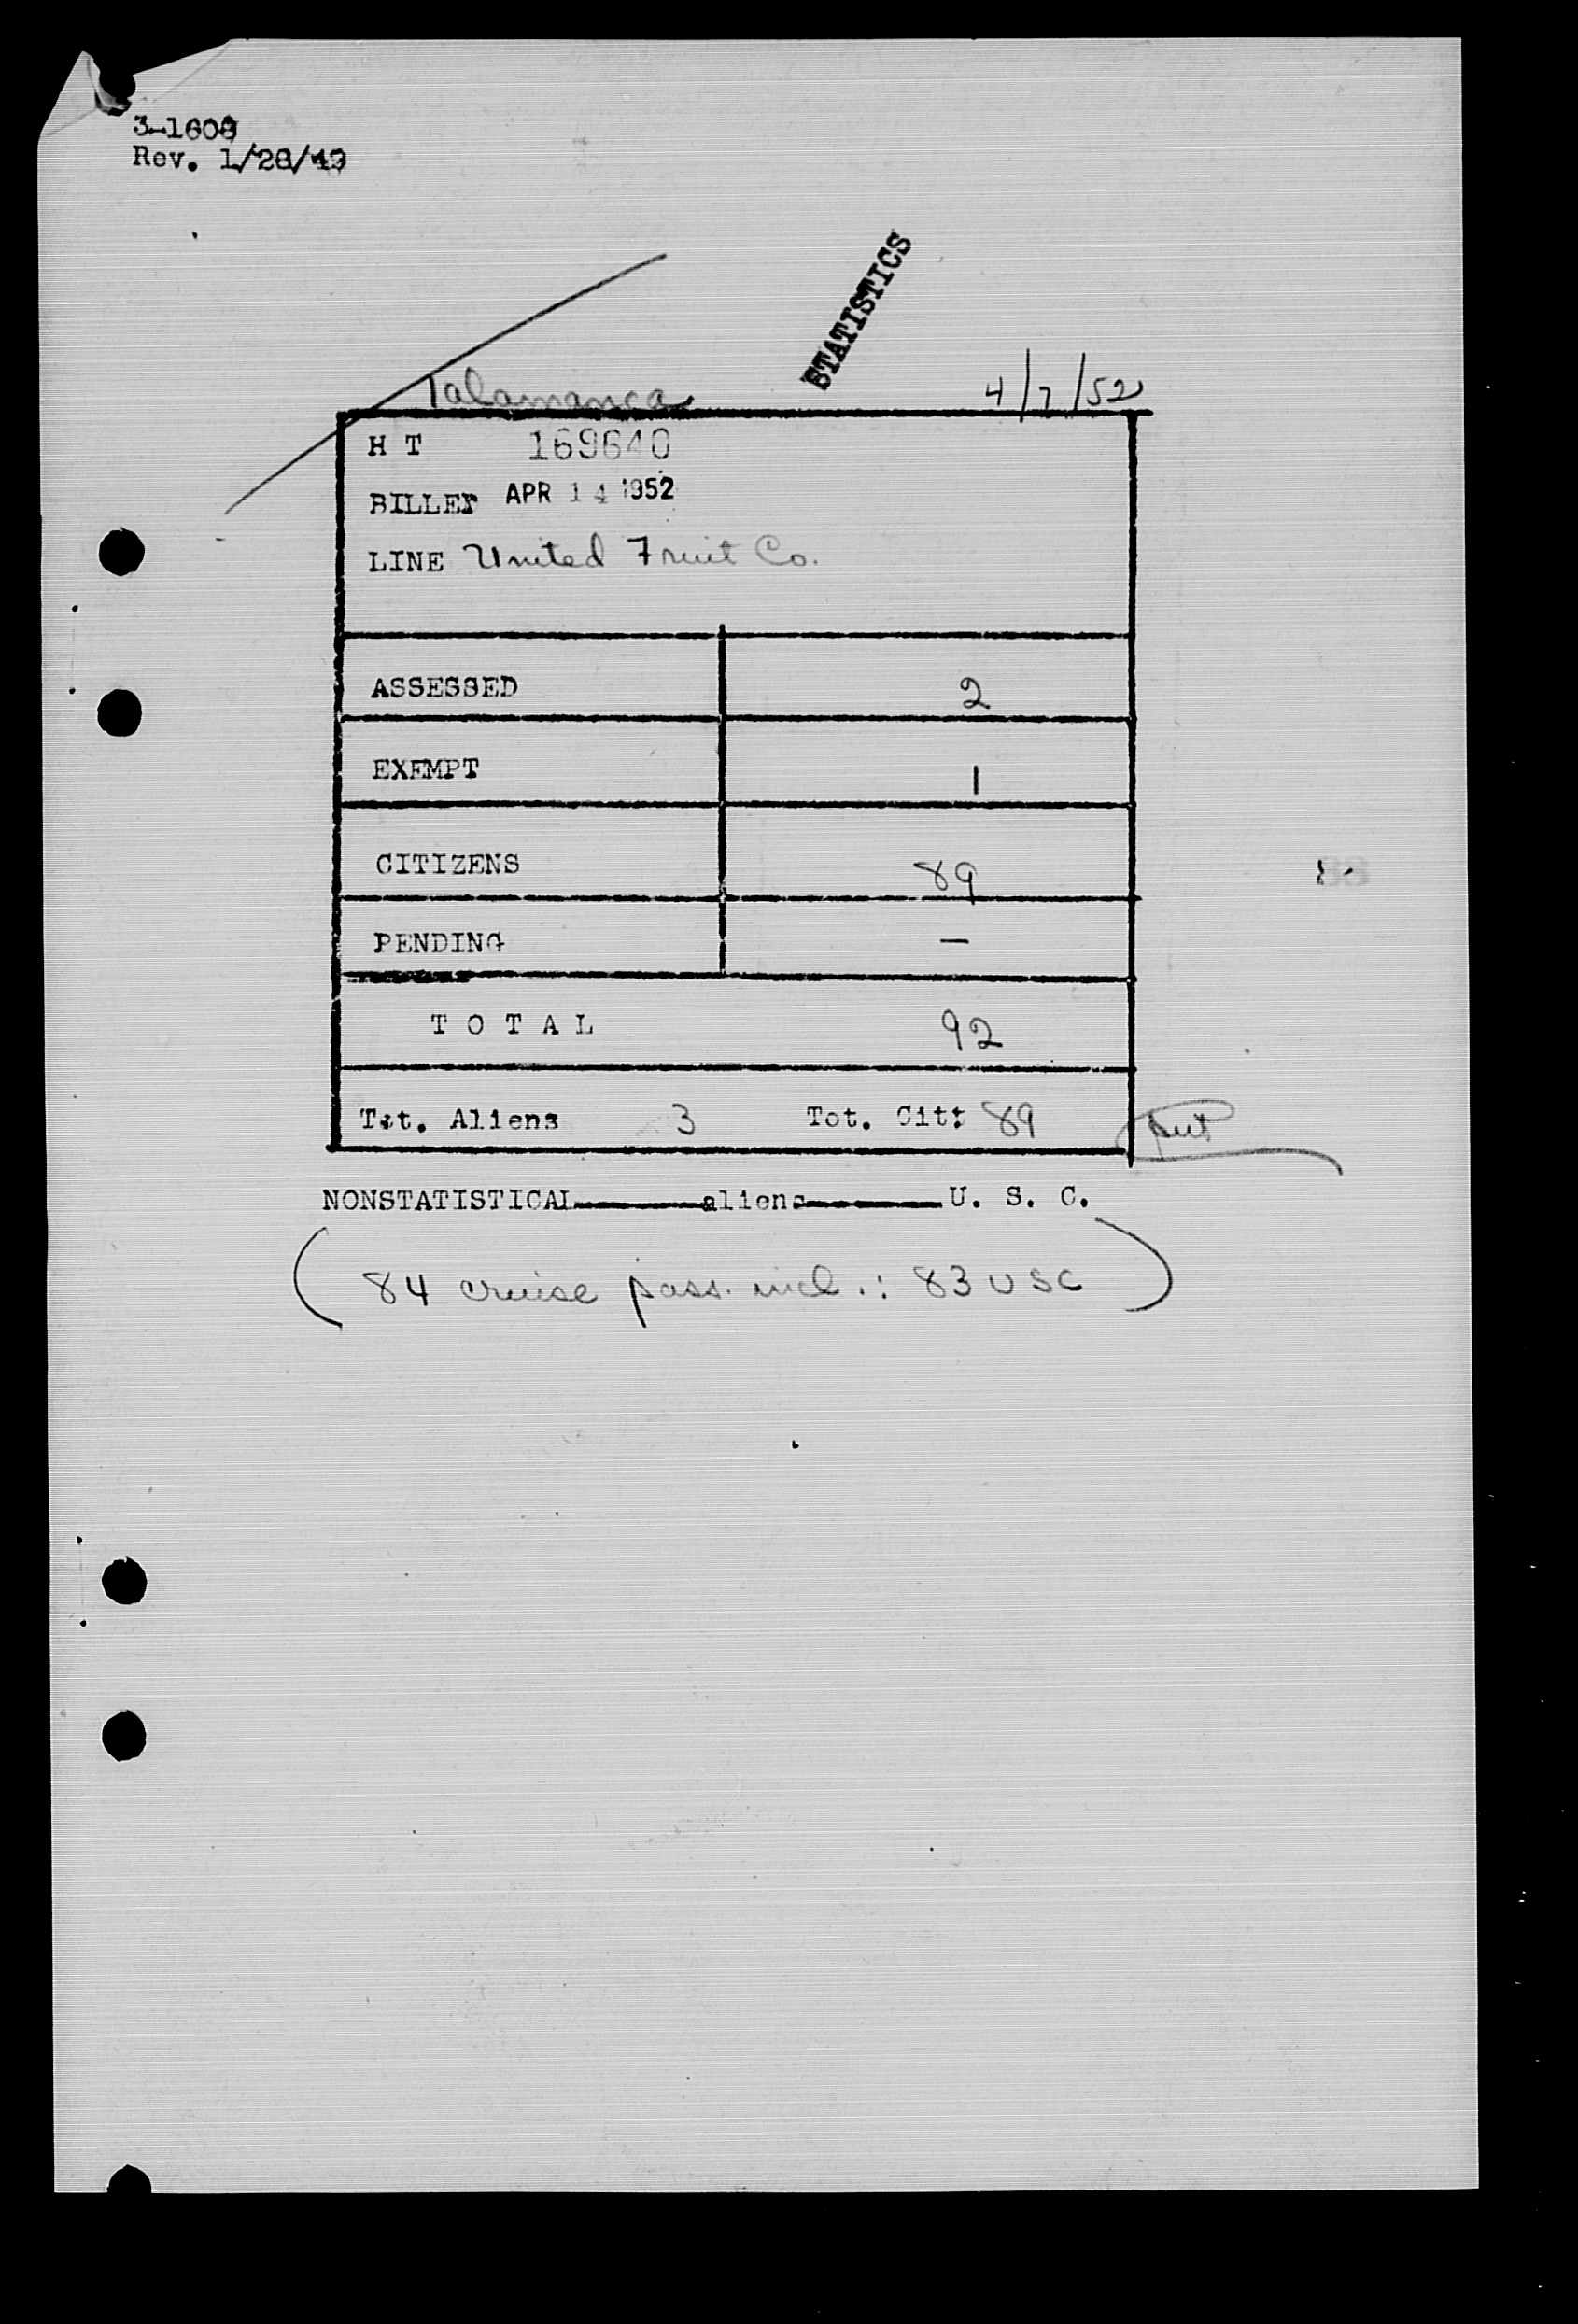 3-1608
Rev. 1/28/49
STATISTICS
Talamanca 4/7/52
H T 169640
BILLED APR 14 1952
LINE United Fruit Co.
ASSESSED 2
EXEMPT 1
CITIZENS 89
PENDING —
T O T A L 92
Tot. Aliens 3 Tot. Cit: 89
NONSTATISTICAL aliens U. S. C.
(84 cruise pass. incl.: 83 USC)